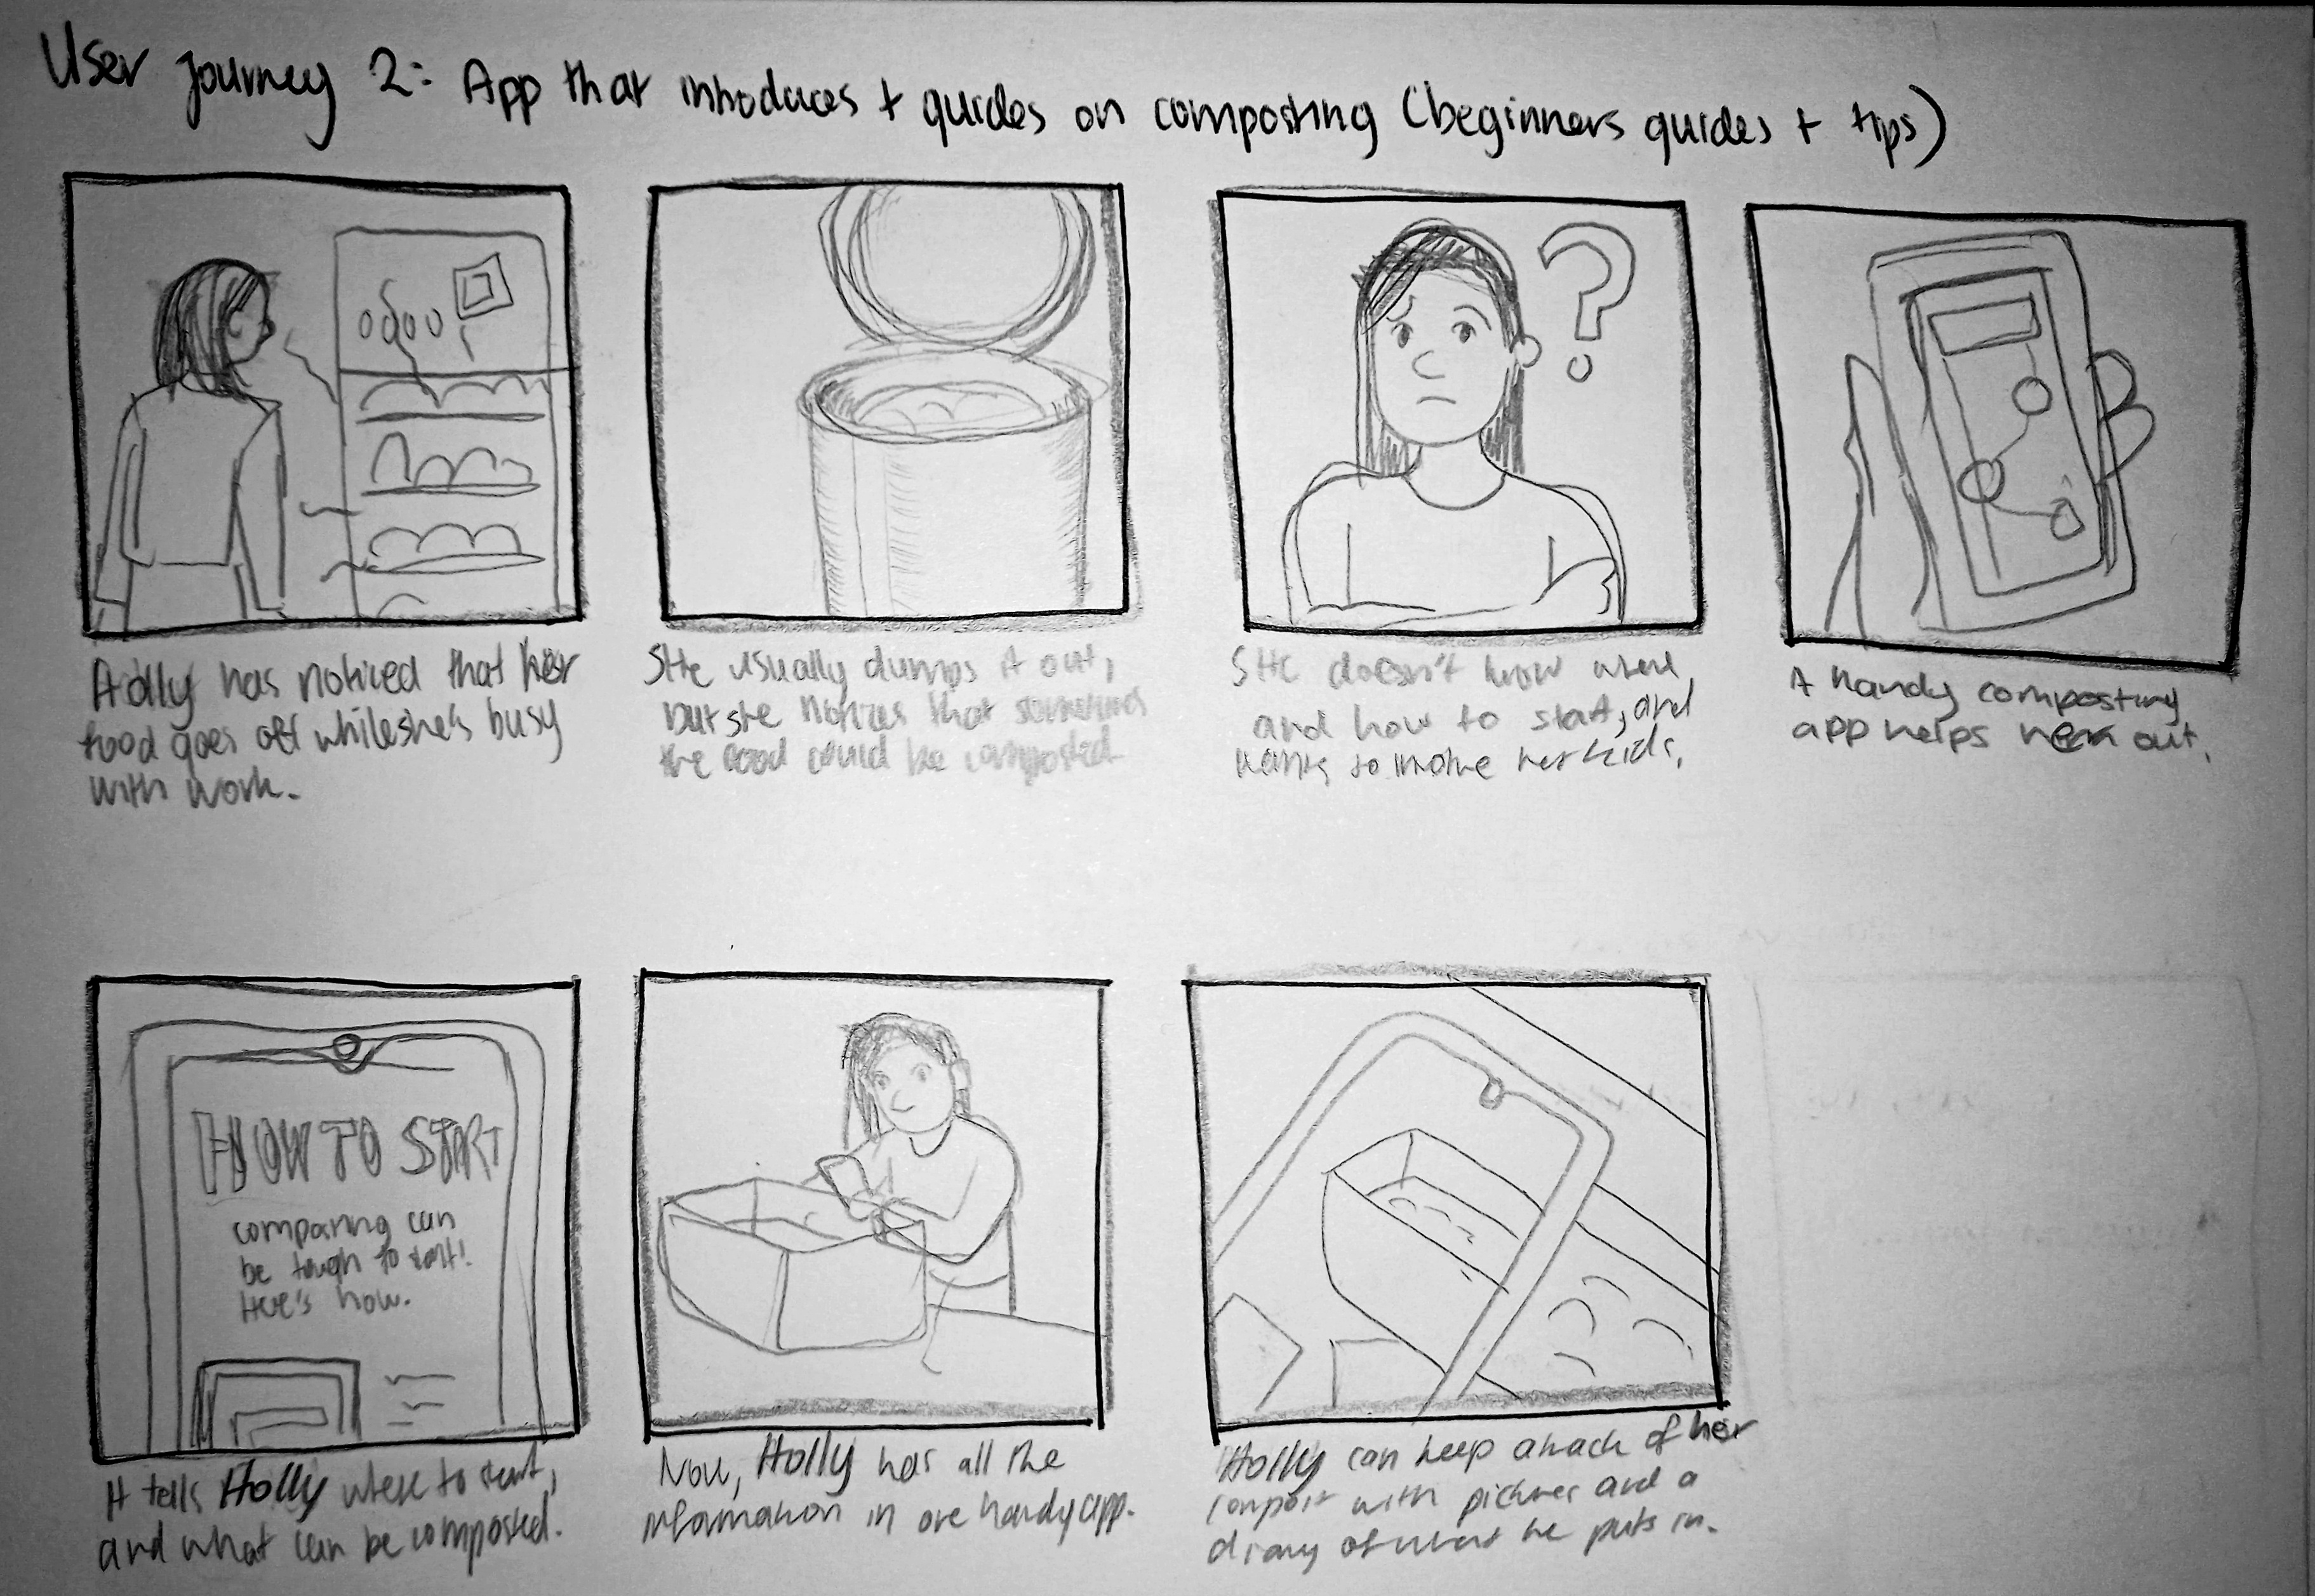 User journey 2: App that introduces + guides on composting (beginners guides + tips)
Holly has noticed that her
food goes off while she's busy
with work.
She usually dumps it out,
but she notices that sometimes
the food could be composted
She doesn't know where
and how to start, and
wants to involve her kids.
A handy composting
app helps her out.
HOW TO START
composting can
be tough to start!
Here's how.
It tells Holly where to start,
and what can be composted.
Now, Holly has all the
information in one handy app.
Holly can keep a track of her
compost with pictures and a
diary of what he puts in.